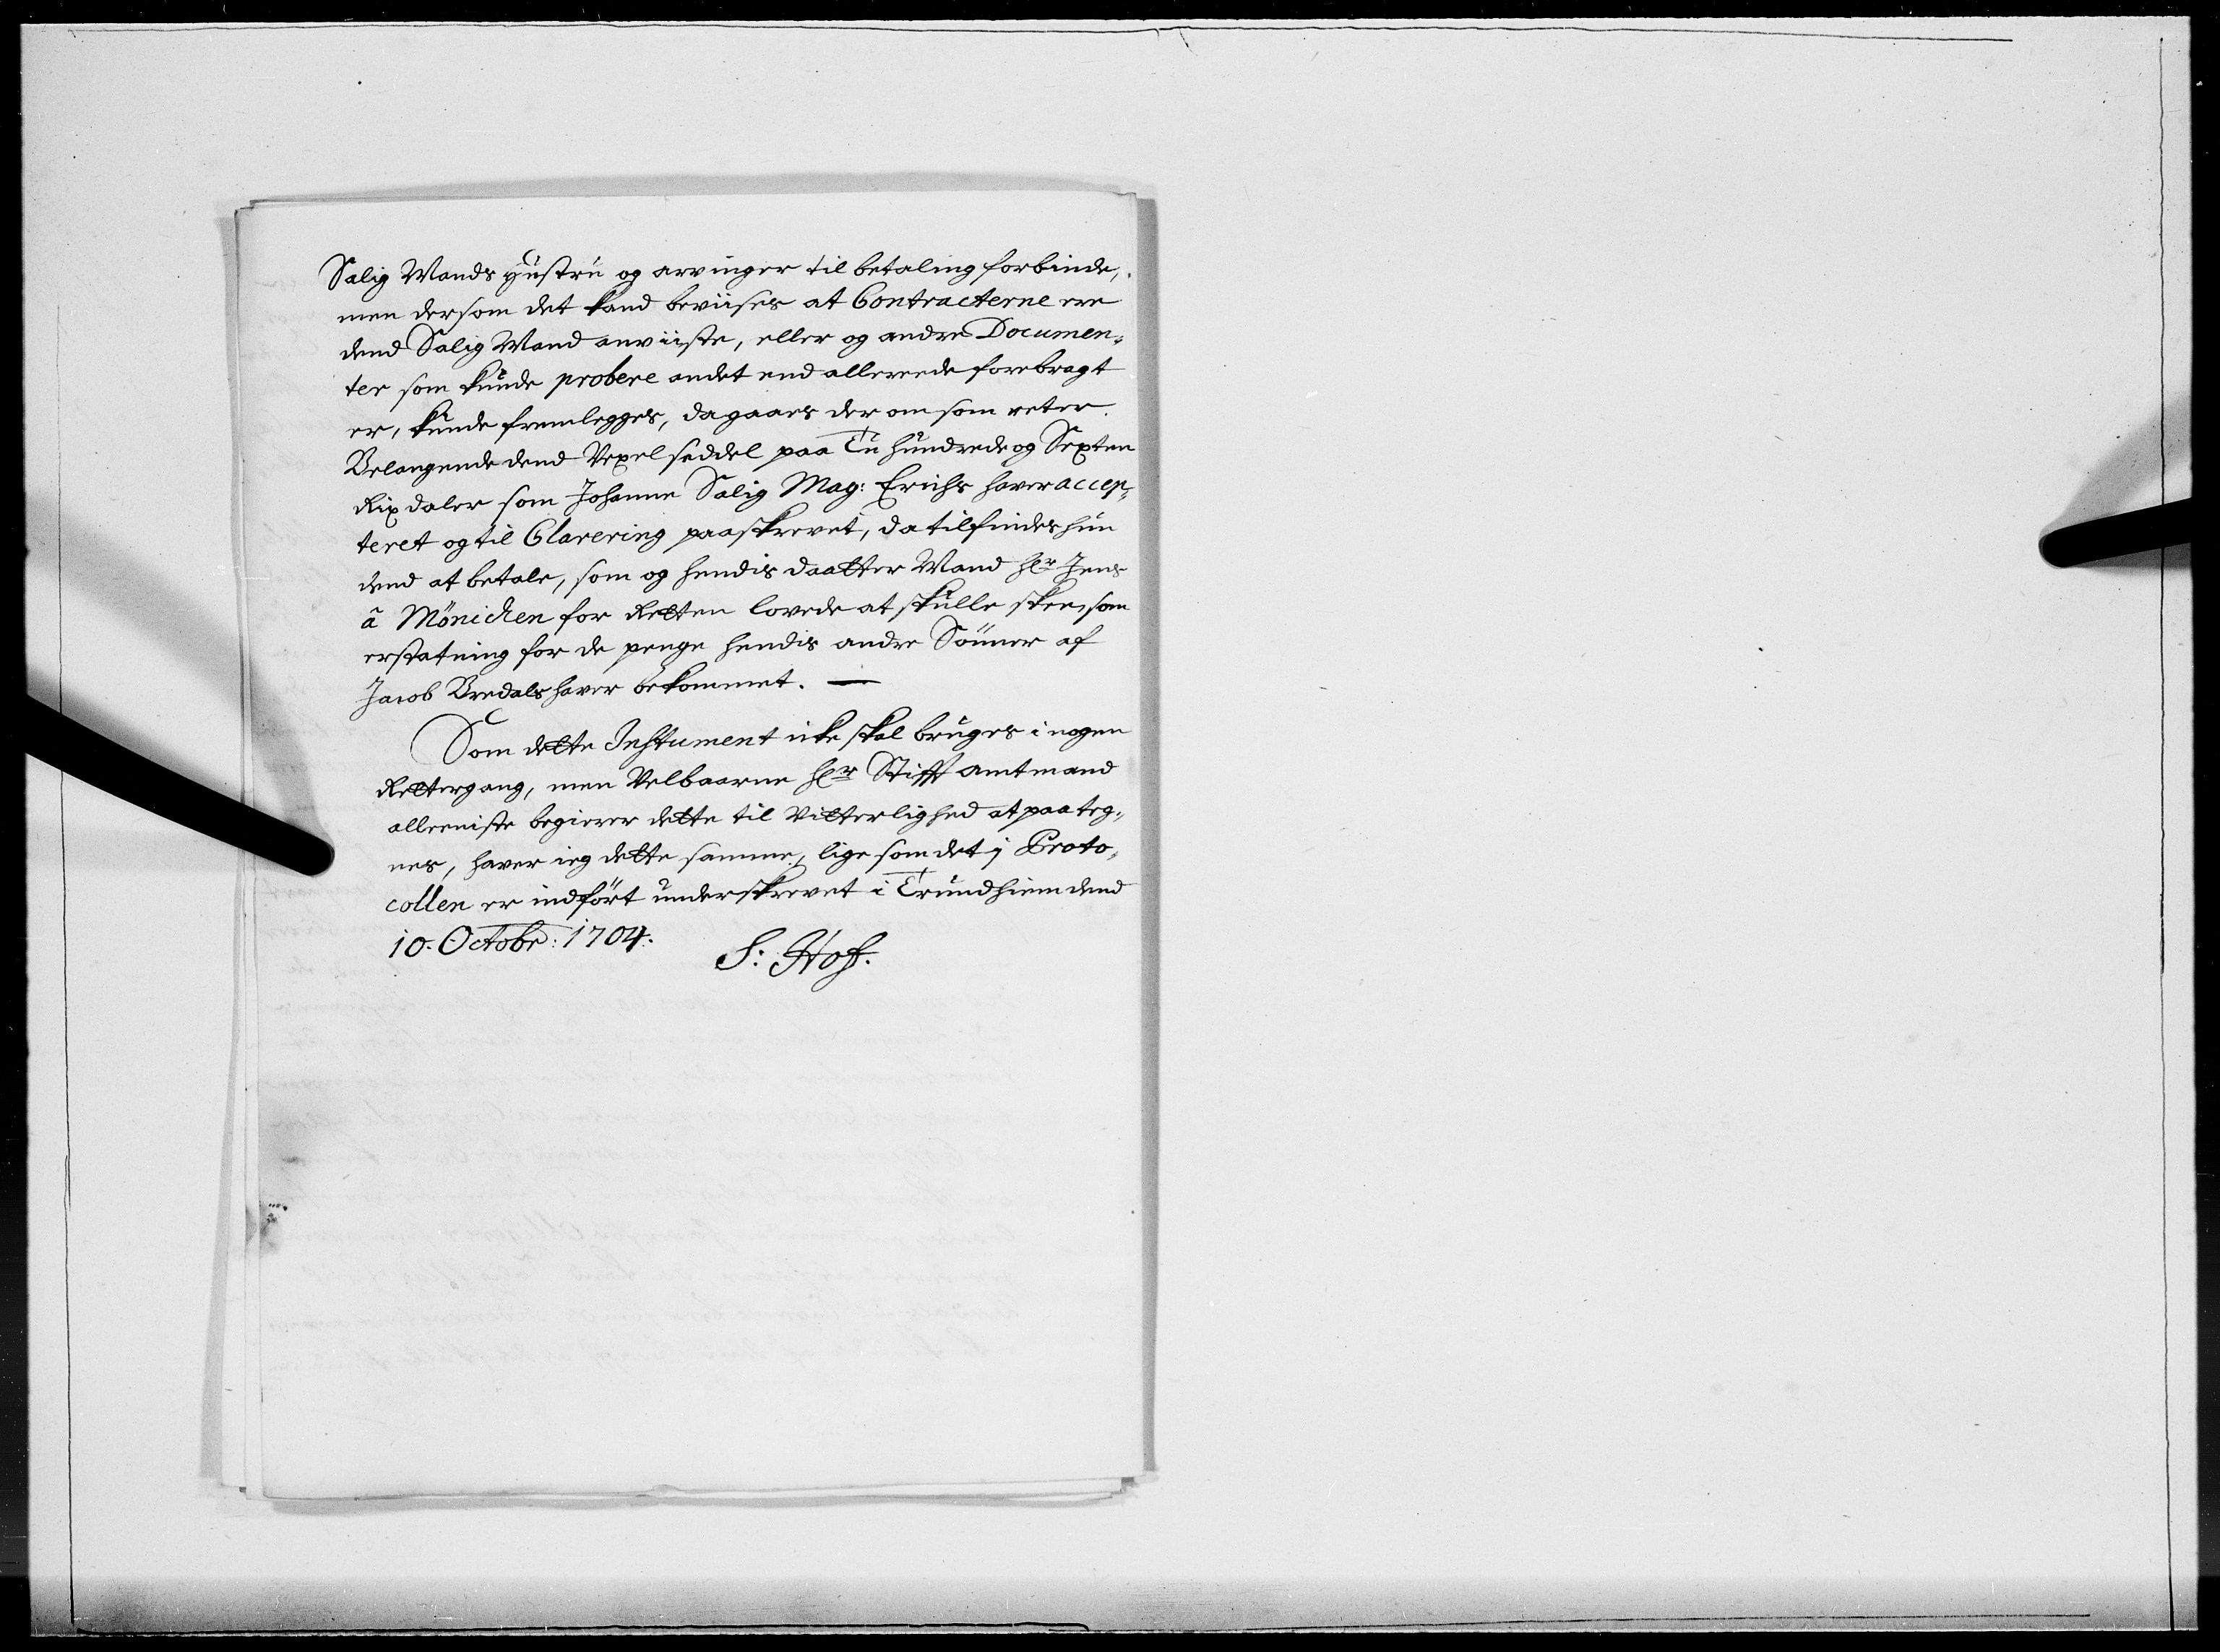 Salig Mands Hustru og arvinger til betaling forbinde,
men dersom det kand beviises at Contracterne ere
dend Salig Mand anviiste, eller og andre Documen-
ter som kunde probere andet end allereede forebragt
er, kunde fremlegges, da gaaes der om som ret er.
Belangende dend Vexel seddel paa Tu hundrede og Sexten
Rixdaler som Johanne Salig Mag: Erichs haver accep-
teret og til Clarering paaskrevet, da tilfindes hun
dend at betale, som og hendis daatter Mand Hr Jens
â Mönichen for Retten lovede at skulle skee, som
erstatning for de penge hendis andre Sönner af
Jacob Bredals haver bekommet. —
Som dette Instument icke skal bruges i nogen
Rettergang, men Velbaarne Hr Stifft amtmand
alleeniste begierer dette til Vitterlighed at paateg-
nes, haver ieg dette samme, lige som det i Proto-
collen er indfört underskrevet i Trundhiem dend
10. Octobr: 1704.
S: Hof.